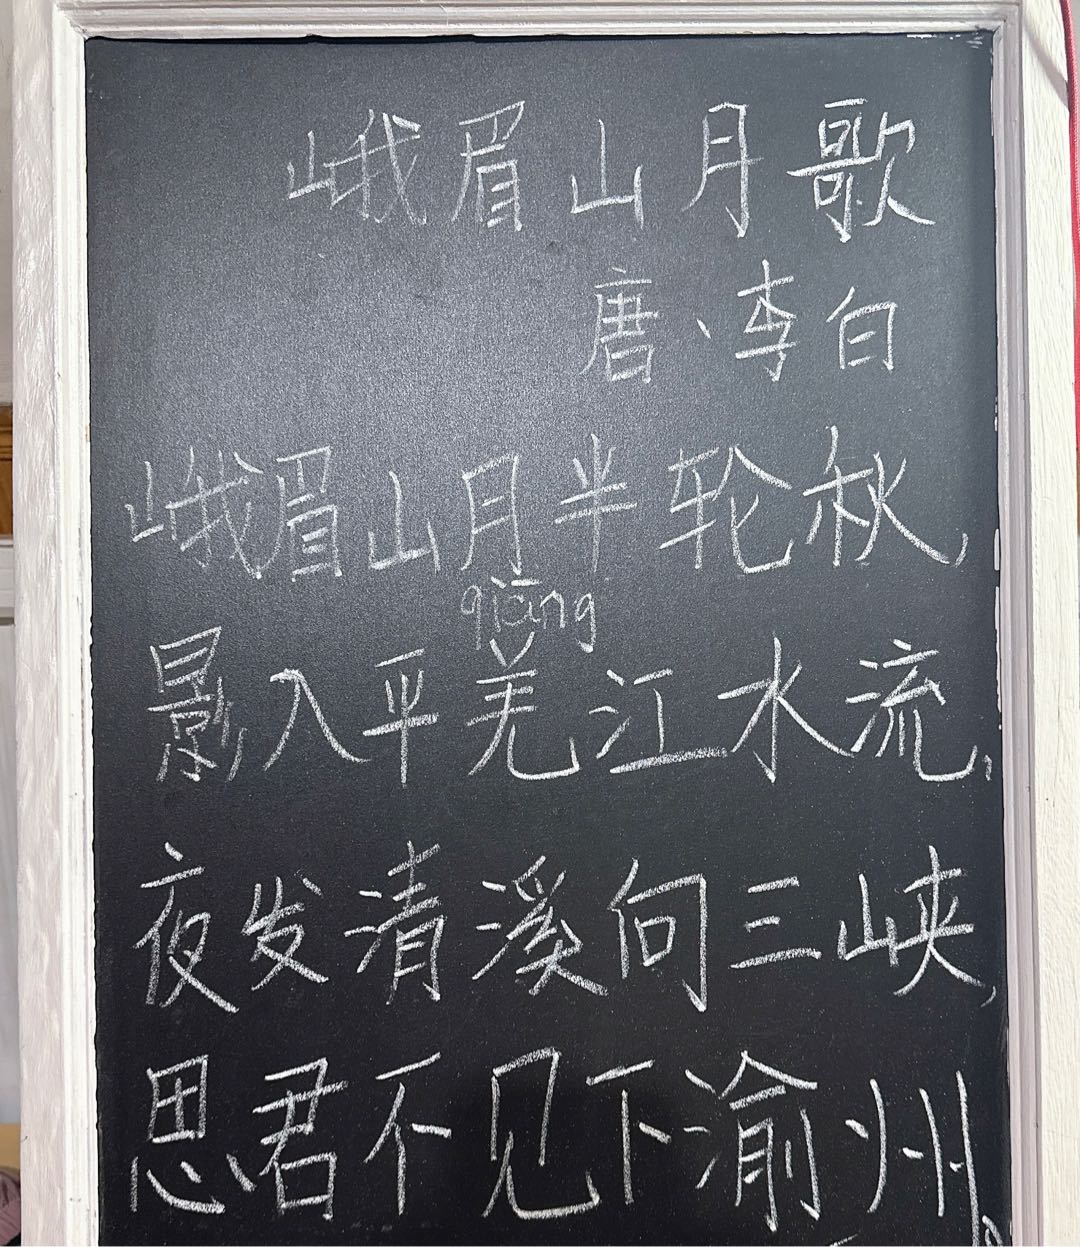 峨眉山月歌
唐、李白
峨眉山月半轮秋,
qiāng
影入平羌江水流,
夜发清溪向三峡,
思君不见下渝州。